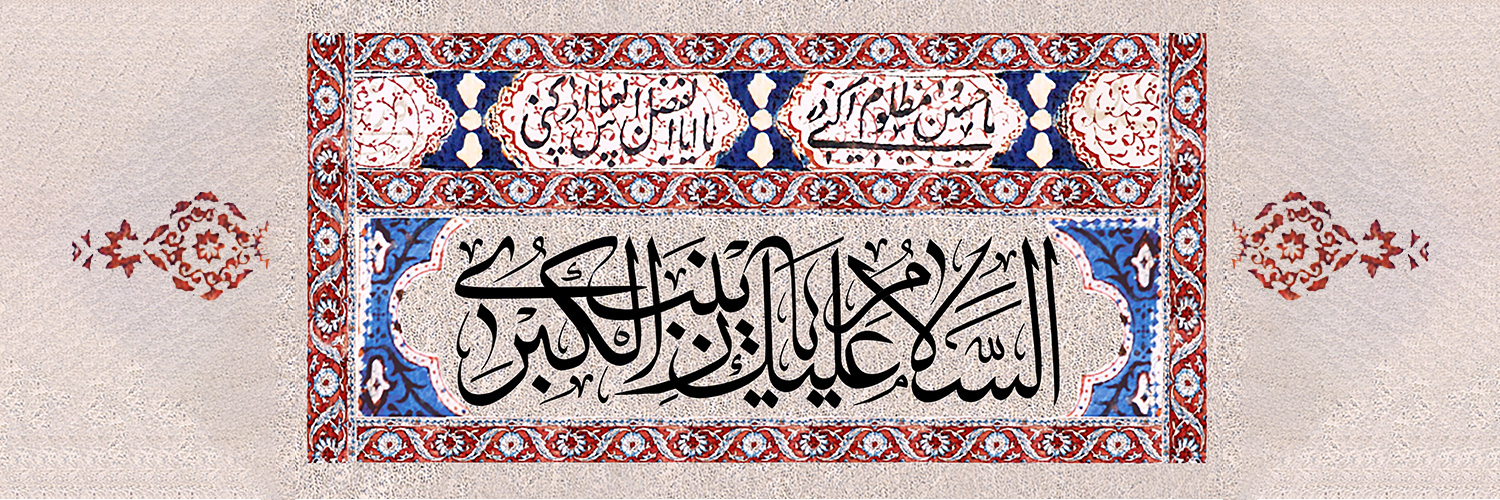 یا حسین مظلوم ادرکنی
یا اباالفضل العباس ادرکنی
السلام علیک یا زینب الکبری